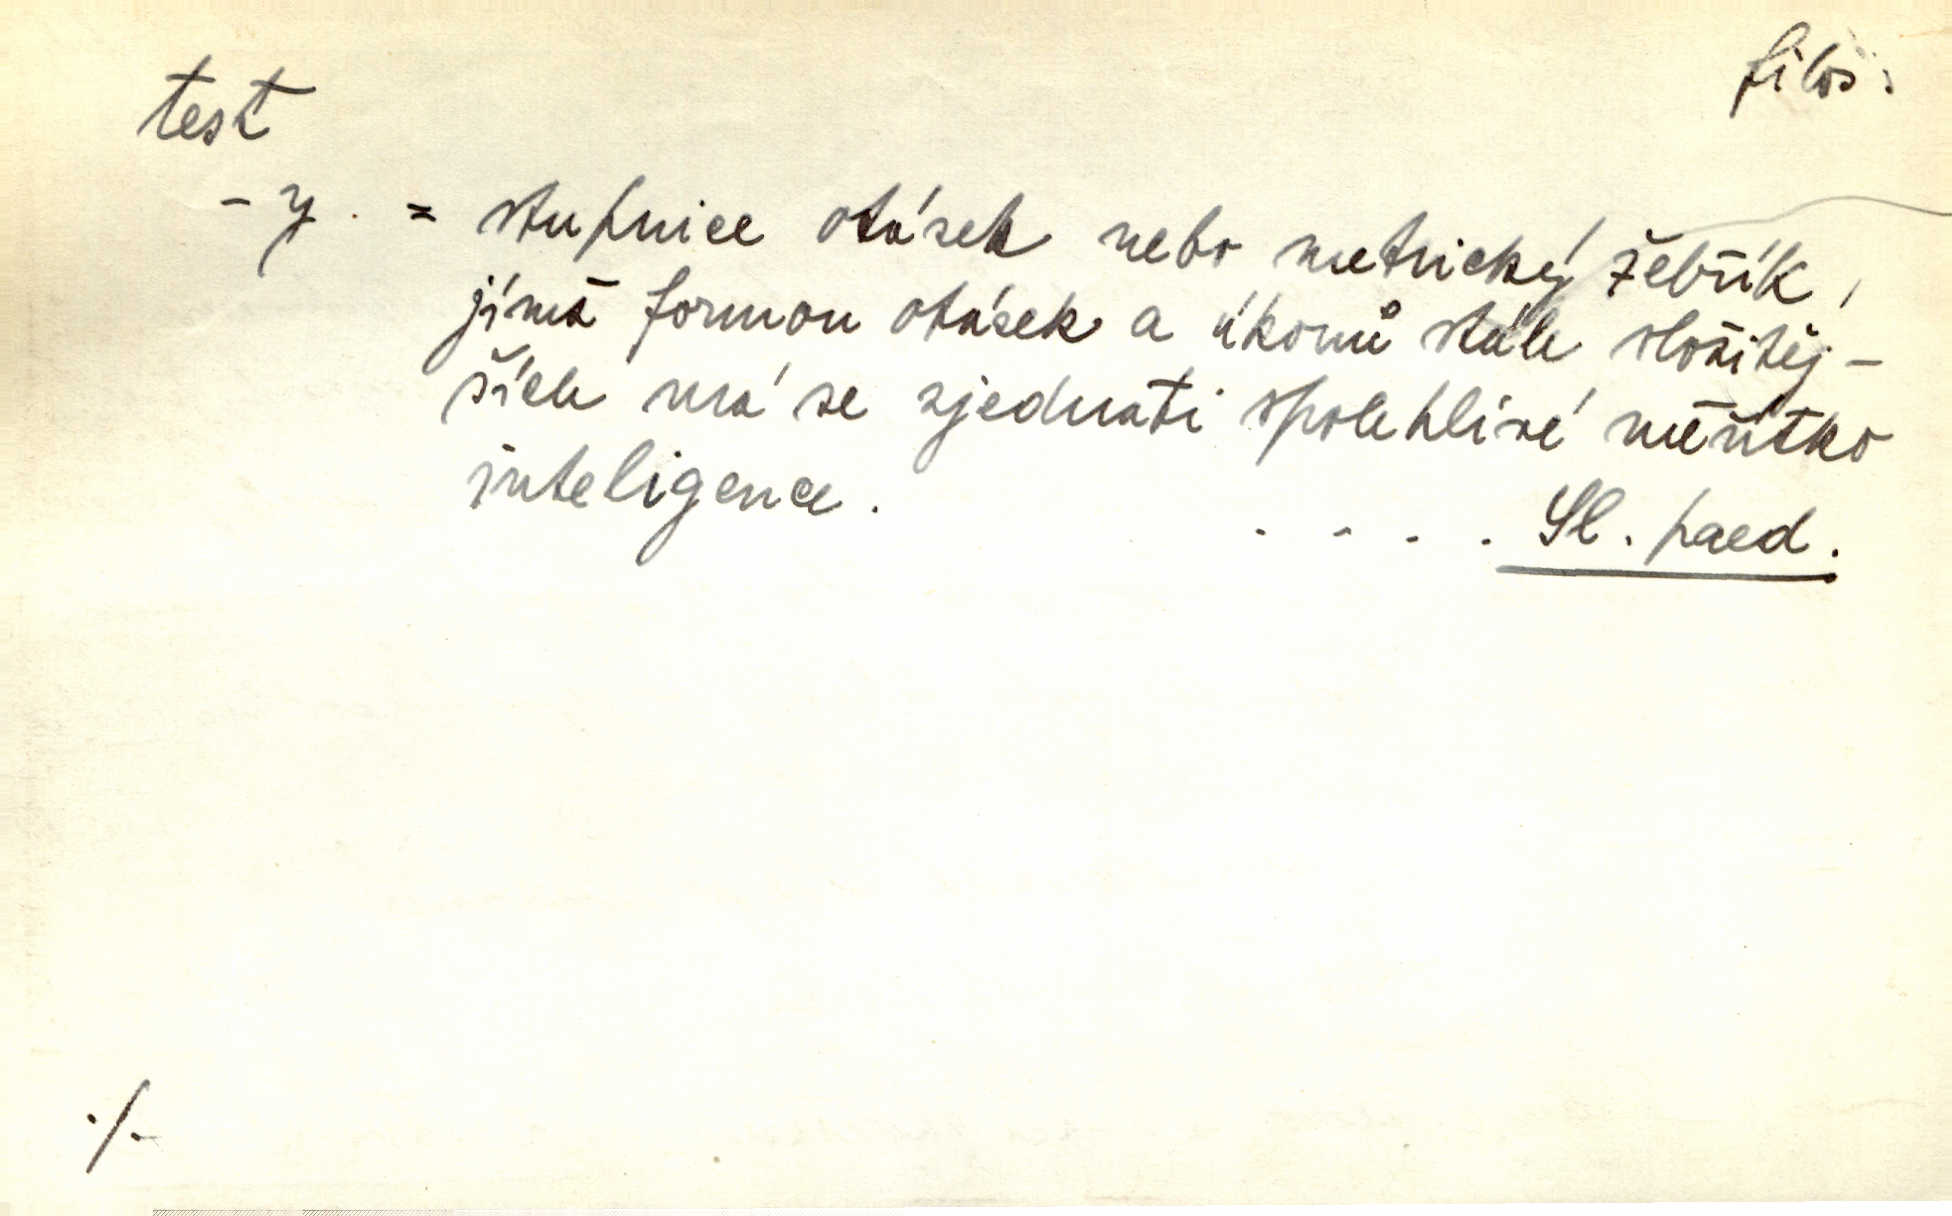 filos.
test
- y. = stupnice otázek nebo metrický žebřík,
jímž formou otázek a úkonů stále složitěj-
ších má se zjednati spolehlivé měřítko
inteligence.
. . . . Sl. paed.
./.